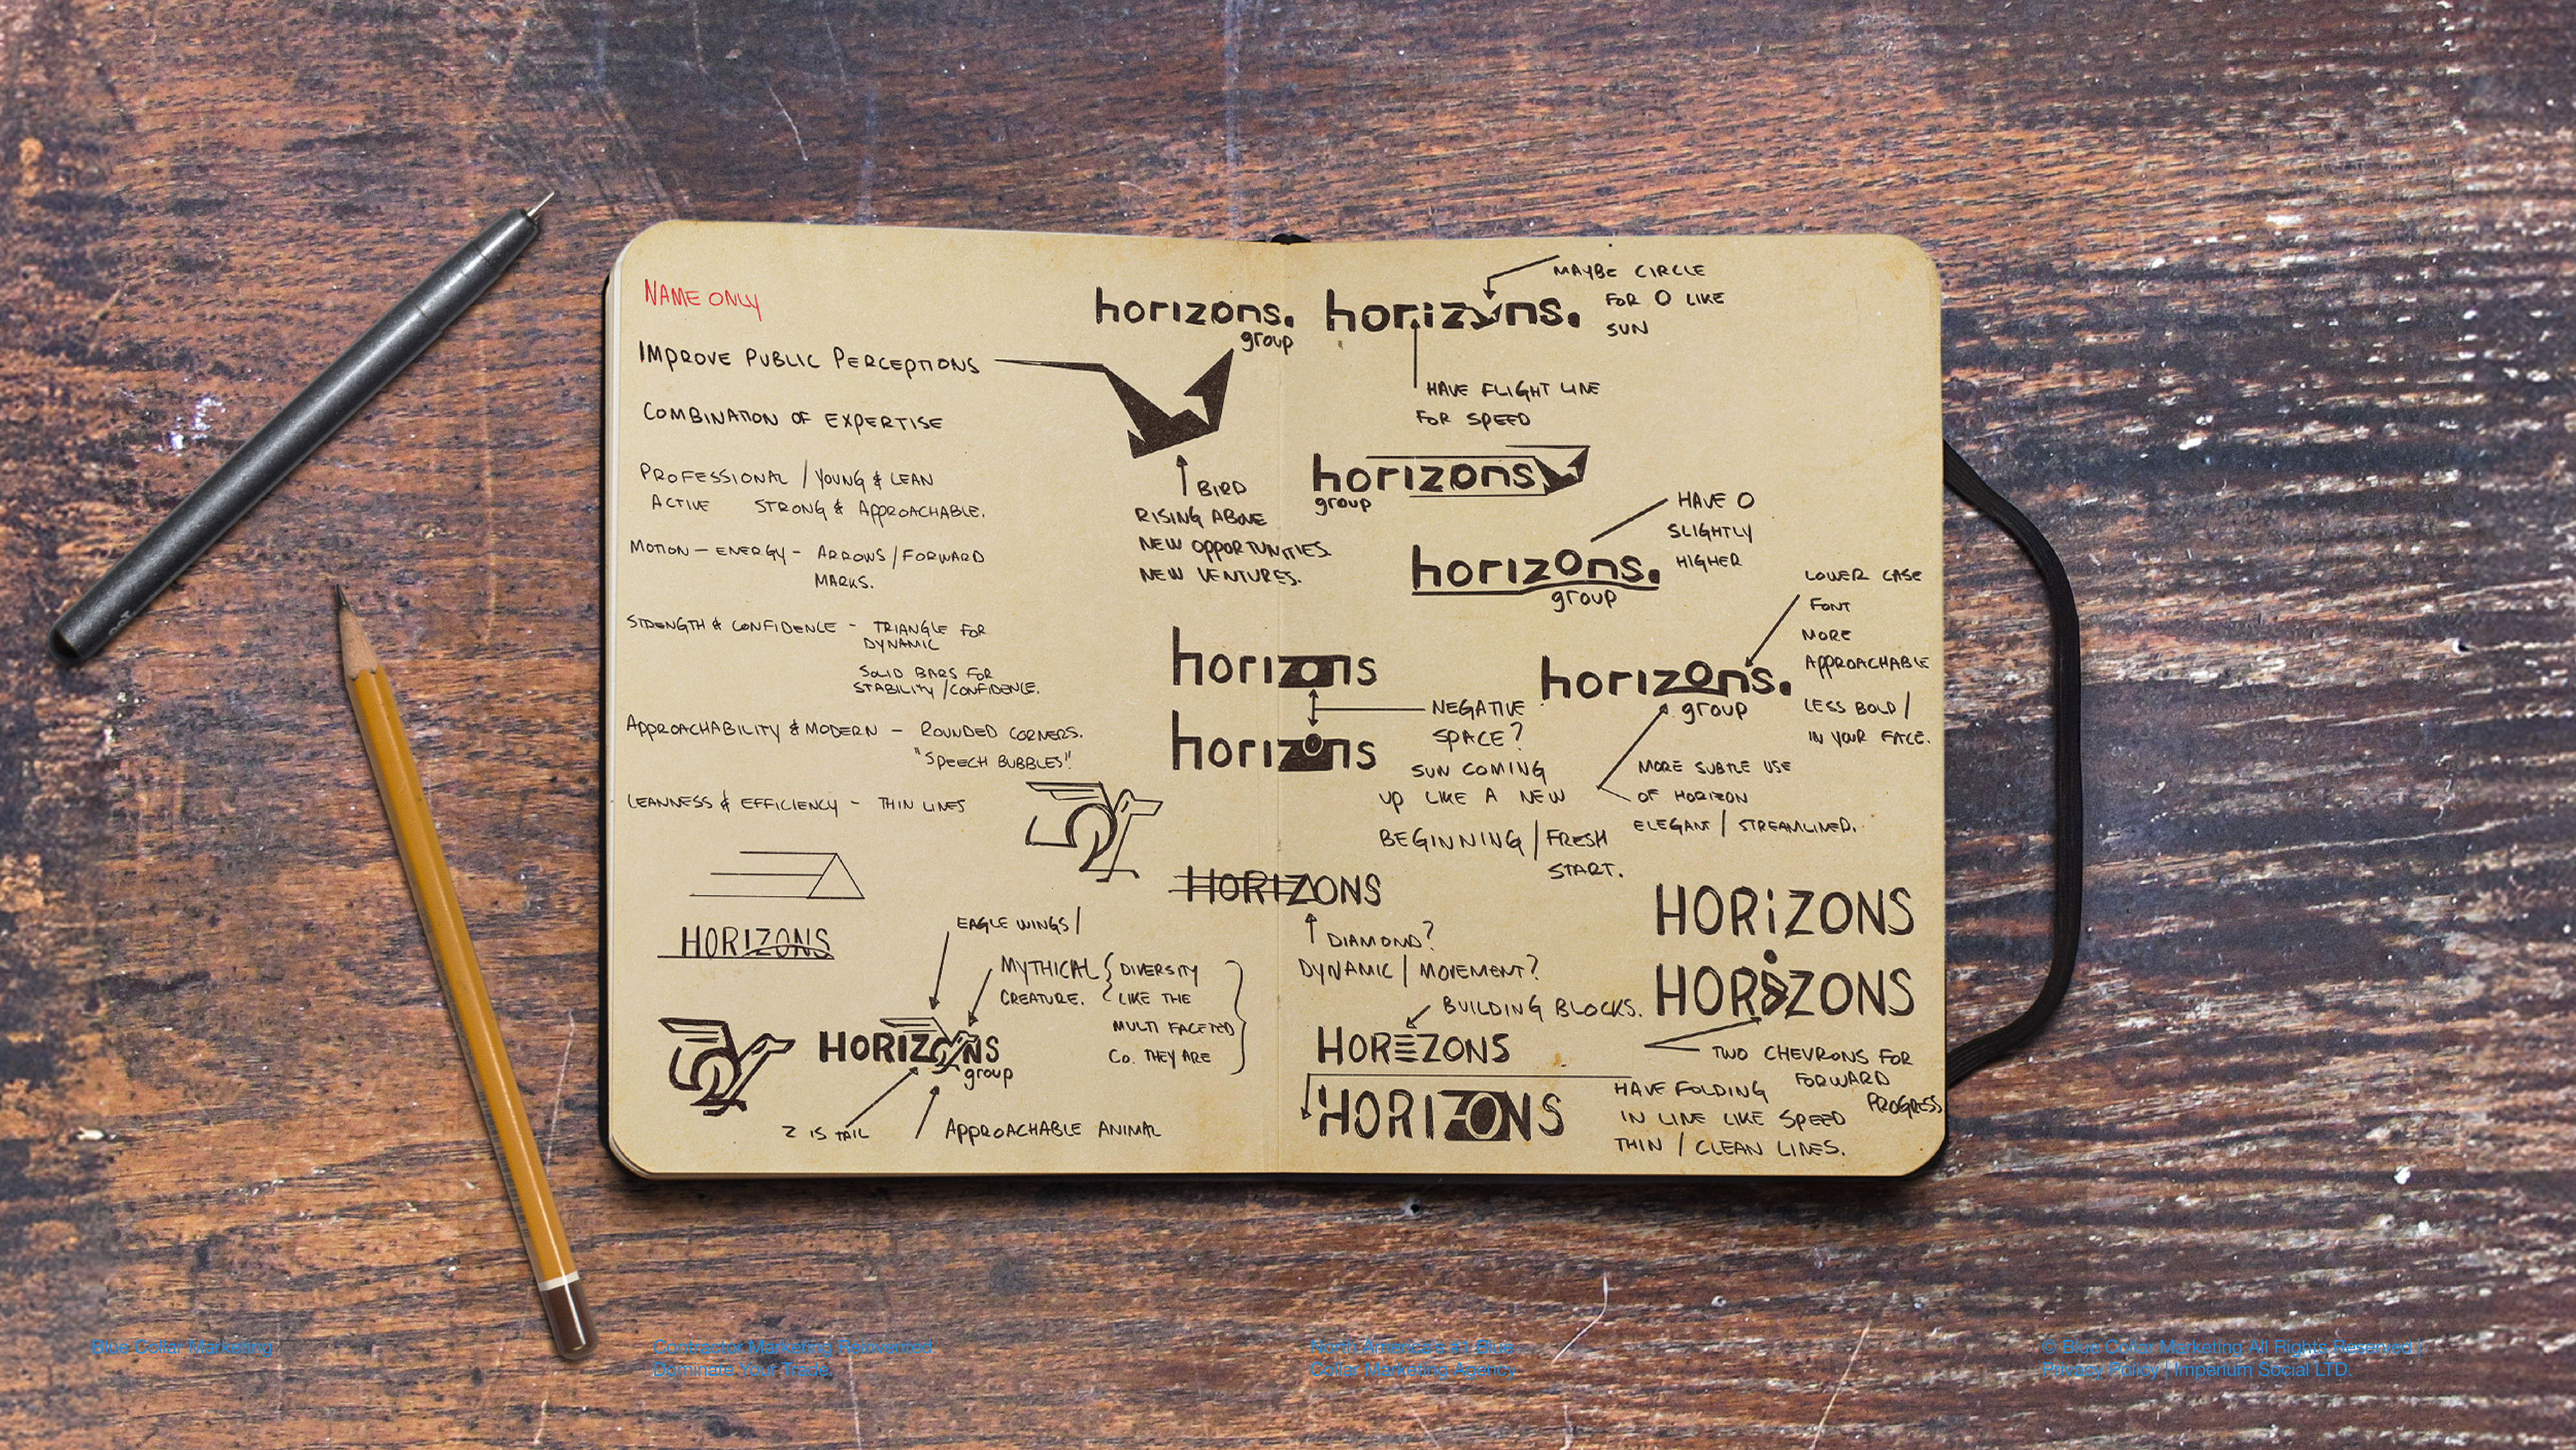 NAME ONLY
IMPROVE PUBLIC PERCEPTIONS
COMBINATION OF EXPERTISE
PROFESSIONAL / YOUNG & LEAN
ACTIVE STRONG & APPROACHABLE.
MOTION - ENERGY - ARROWS / FORWARD
MARKS.
STRENGTH & CONFIDENCE - TRIANGLE FOR
DYNAMIC
SOLID BARS FOR
STABILITY / CONFIDENCE.
APPROACHABILITY & MODERN - ROUNDED CORNERS.
"SPEECH BUBBLES".
LEANNESS & EFFICIENCY - THIN LINES
HORIZONS
EAGLE WINGS /
MYTHICAL { DIVERSITY
CREATURE. LIKE THE
MULTI FACETED
CO. THEY ARE }
HORIZONS
group
Z IS TAIL
APPROACHABLE ANIMAL
horizons.
group
BIRD
RISING ABOVE
NEW OPPORTUNITIES.
NEW VENTURES.
horizons.
MAYBE CIRCLE
FOR O LIKE
SUN
HAVE FLIGHT LINE
FOR SPEED
horizons
group
HAVE O
SLIGHTLY
HIGHER
horizons.
group
horizons
horizons
NEGATIVE
SPACE?
SUN COMING
UP LIKE A NEW
BEGINNING / FRESH
START.
horizons.
group
LOWER CASE
FONT
MORE
APPROACHABLE
LESS BOLD /
IN YOUR FACE.
MORE SUBTLE USE
OF HORIZON
ELEGANT / STREAMLINED.
HORIZONS
DIAMOND?
DYNAMIC / MOVEMENT?
HORiZONS
HORIZONS
TWO CHEVRONS FOR
FORWARD
PROGRESS
BUILDING BLOCKS.
HORIZONS
HORIZONS
HAVE FOLDING
IN LINE LIKE SPEED
THIN / CLEAN LINES.
Blue Collar Marketing
Contractor Marketing Reinvented.
Dominate Your Trade.
North America's #1 Blue
Collar Marketing Agency
© Blue Collar Marketing All Rights Reserved |
Privacy Policy | Imperium Social LTD.